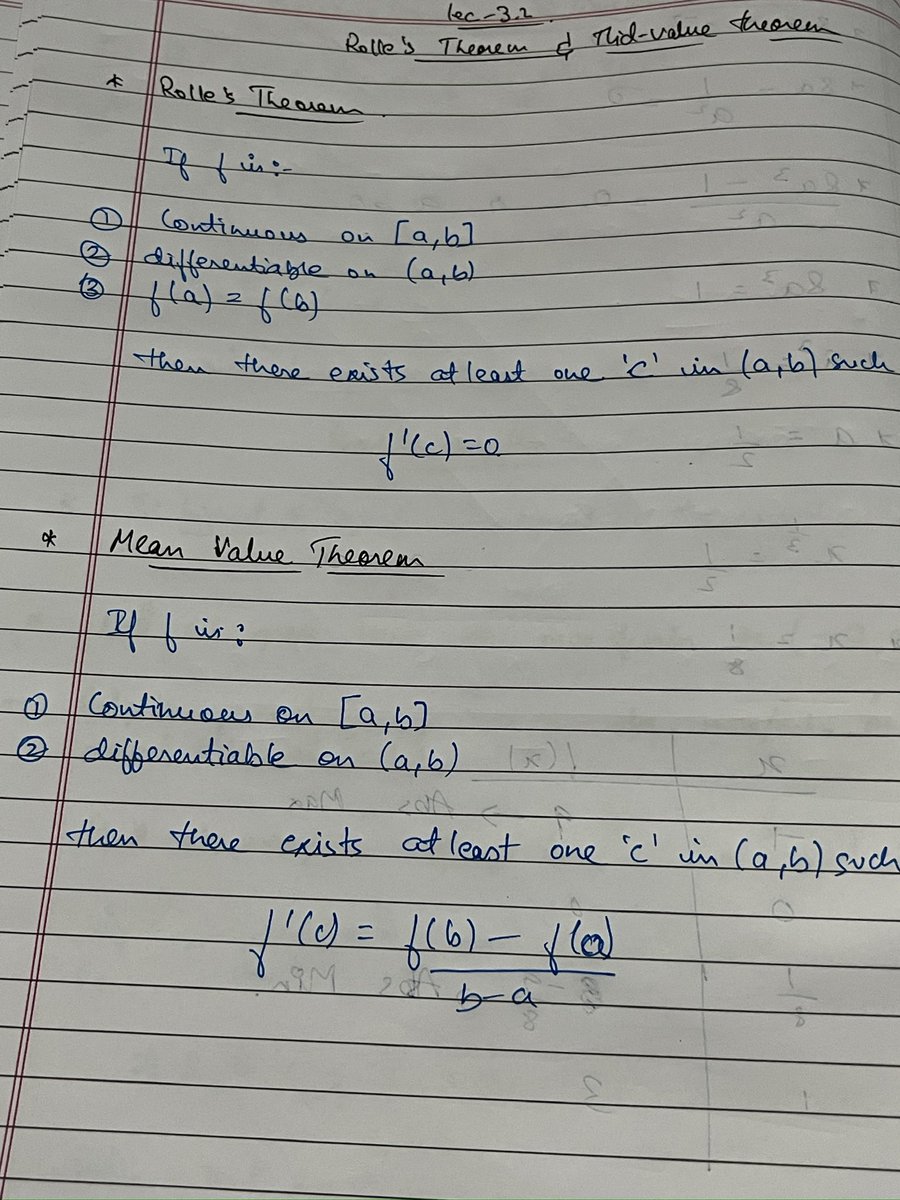 Lec-3.2
Rolle's Theorem & Mid-value theorem
* Rolle's Theorem
If f is:-
① Continuous on [a,b]
② differentiable on (a,b)
③ f(a) = f(b)
then there exists at least one 'c' in (a,b) such
f'(c) = 0
* Mean Value Theorem
If f is:
① Continuous on [a,b]
② differentiable on (a,b)
then there exists at least one 'c' in (a,b) such
f'(c) = f(b) - f(a)
b-a